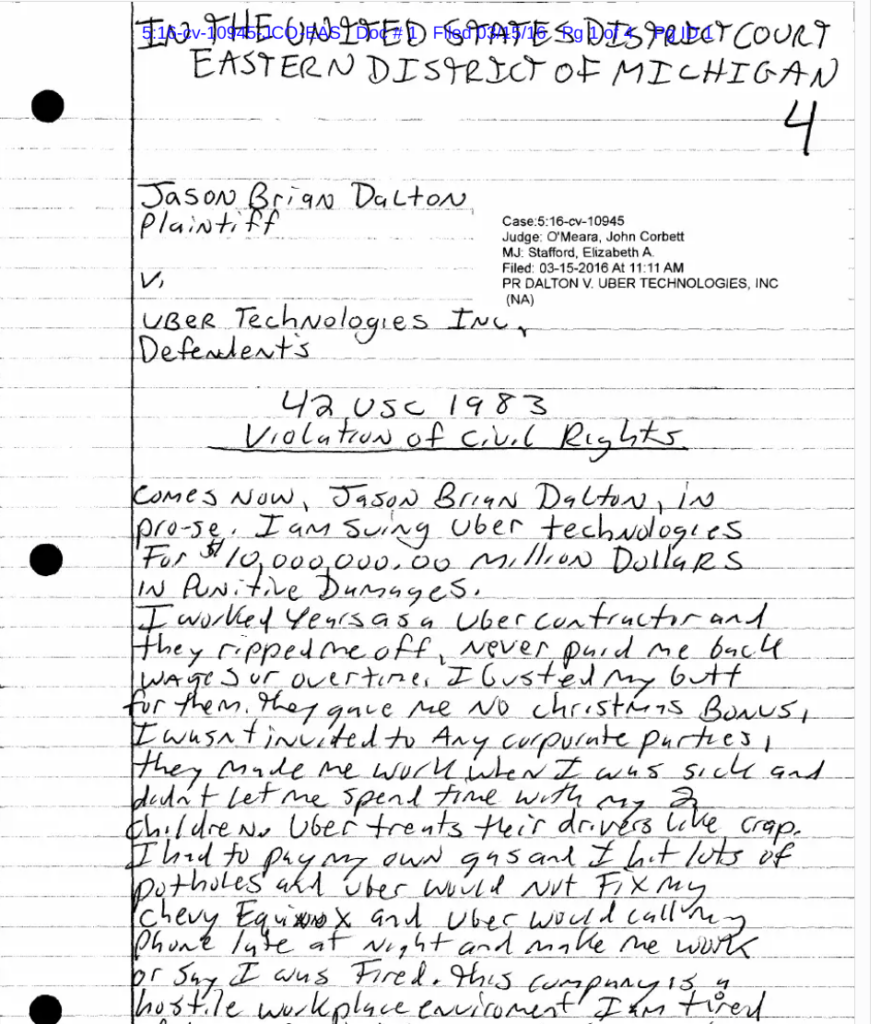 IN THE UNITED STATES DISTRICT COURT
5:16-cv-10945-JCO-EAS Doc # 1 Filed 03/15/16 Pg 1 of 4 Pg ID 1
EASTERN DISTRICT OF MICHIGAN
4
Jason Brian Dalton
Plaintiff
Case:5:16-cv-10945
Judge: O'Meara, John Corbett
MJ: Stafford, Elizabeth A.
Filed: 03-15-2016 At 11:11 AM
PR DALTON V. UBER TECHNOLOGIES, INC
(NA)
V,
UBER Technologies INC,
Defendent's
42 USC 1983
Violation of Civil Rights
Comes Now, Jason Brian Dalton, in
pro-se. I am suing Uber technologies
For $10,000,000.00 Million Dollars
IN Punitive Damages.
I worked years as a Uber contractor and
they ripped me off, Never paid me back
wages or overtime. I busted my butt
for them. they gave me No christmas Bonus,
I wasnt invited to Any corporate parties,
they made me work when I was sick and
didn't let me spend time with my 2
Children. Uber treats their drivers like crap.
I had to pay my own gas and I hit lots of
potholes and uber would Not Fix my
Chevy Equinox and Uber would call my
Phone late at Night and make me work
or Say I was Fired. this company is a
hostile workplace enviroment I am tired